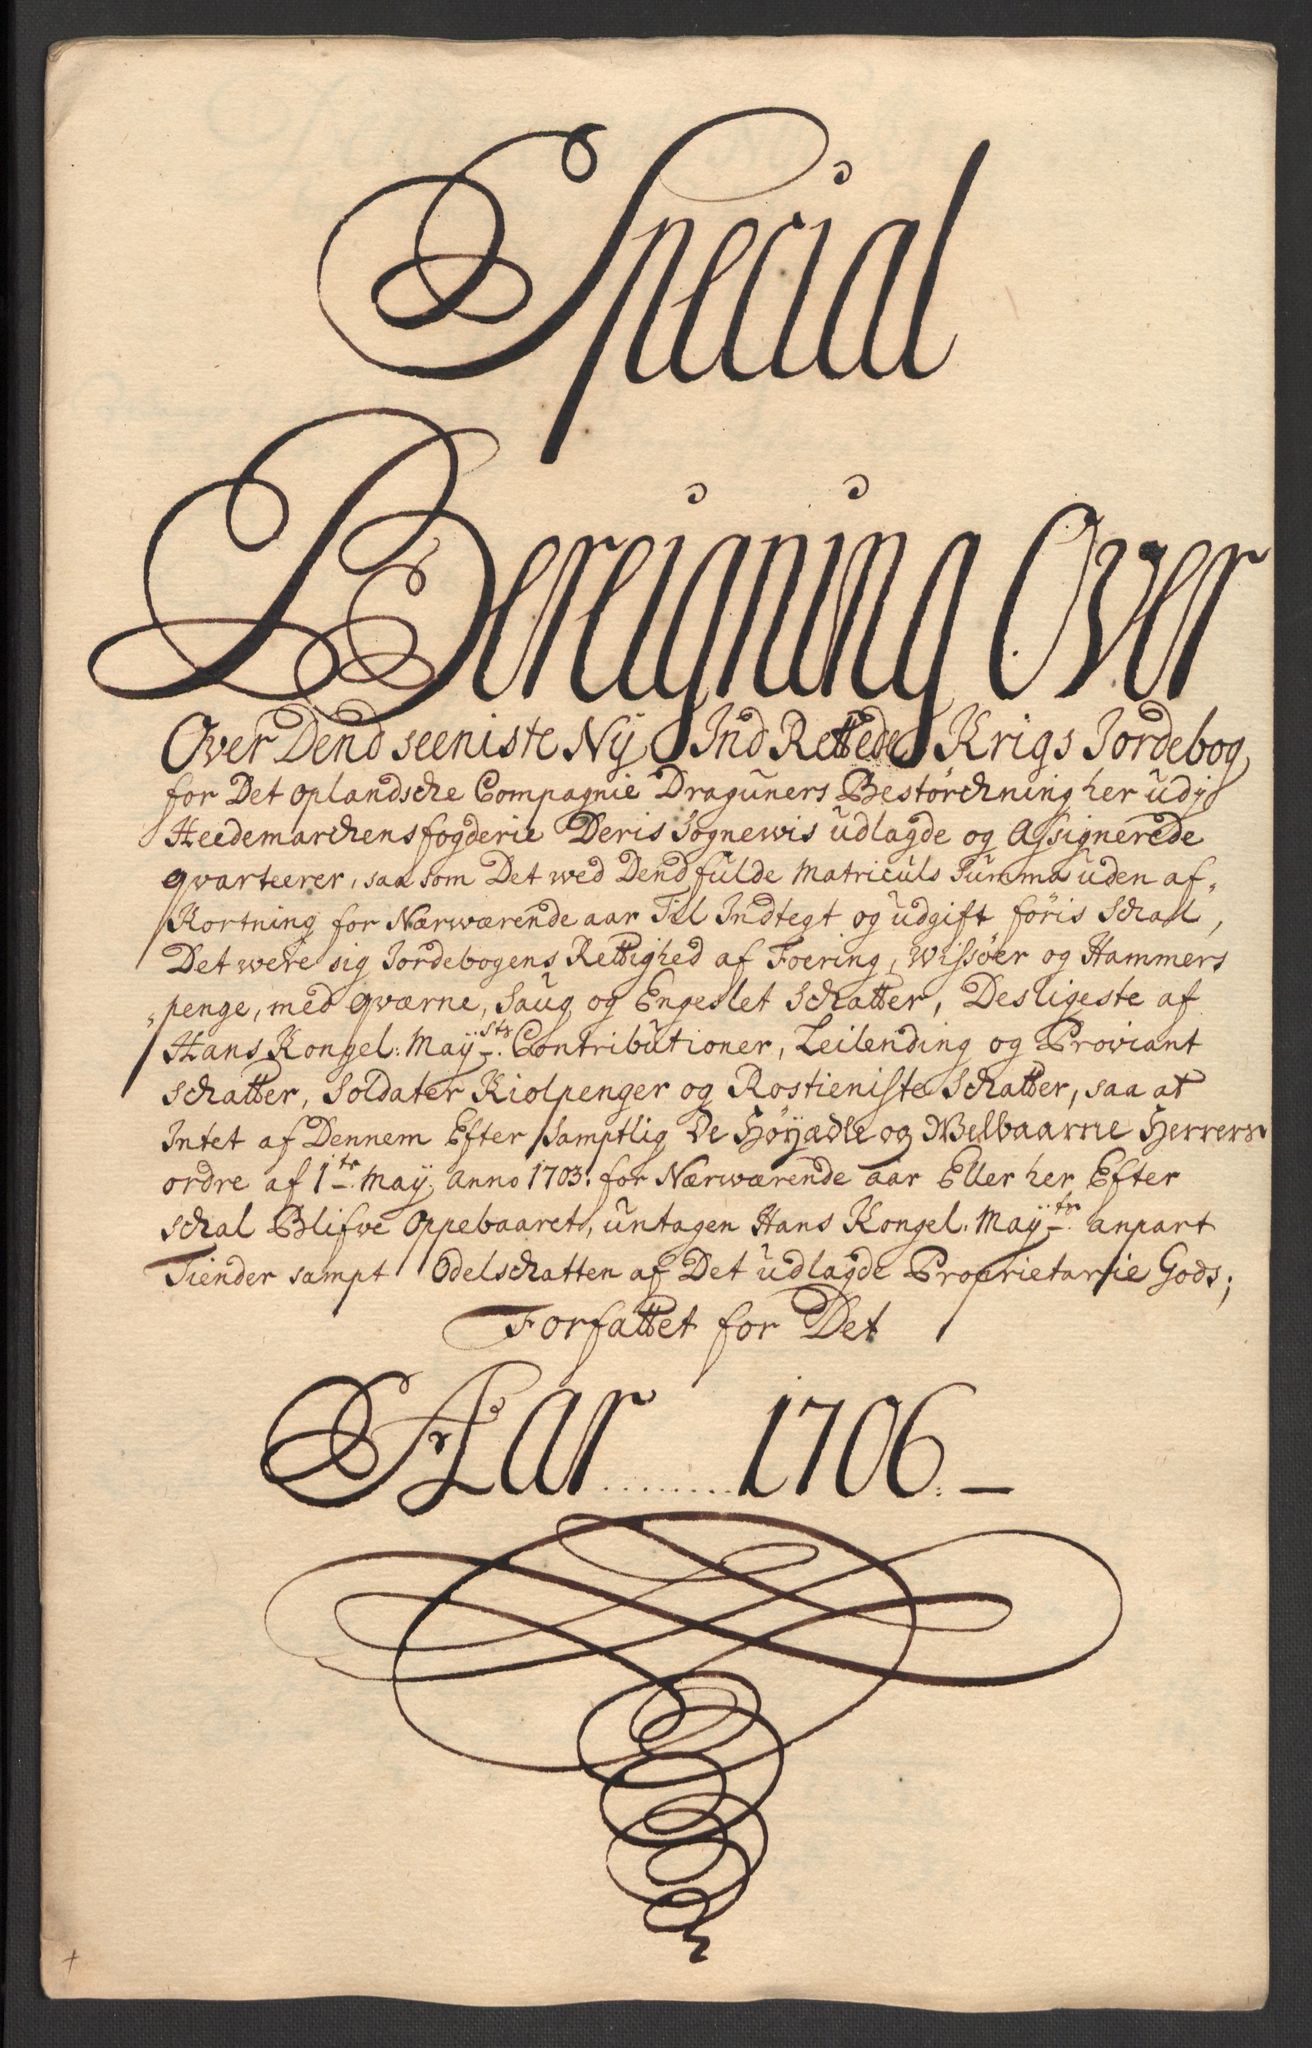 Special
Bereigning Over
Over Dend seeniste Nÿ Ind Rettede Krigs Jordebog
for Det oplandsche Compagnie Draguners Bestørchning her udj
Heedemarchens fogderie Deris Sognewis udlagde og Assignerede
qvarteerer, saa som Det wed Dend fulde Matriculs Summa uden af„
Kortning for Nærwærende aar Til Indtegt og udgift føris Schal,
Det were sig Jordebogens Rettighed af Foering, Wissøer og Hammers
„penge, med qværne, Saug og Engeslet Schatter, Desligeste af
Hans Kongel: Maÿsts: Contributioner, Leilending og Proviant
Schatter, Soldater Kiolpenger og Rostieniste Schatter, saa at
Intet af Dennem Efter Samptlig De Høÿædle og Welbaarne Herrers
ordre af 1te Maÿ, anno 1703. for Nærwærende aar Eller her Efter
Schal Blifve Oppebaaret, untagen Hans Kongel. Maÿts: anpart
Tiender sampt Odelschatten af Det udlagde Proprietarie Gods;
Forfattet for Det
Aar ........ 1706. —